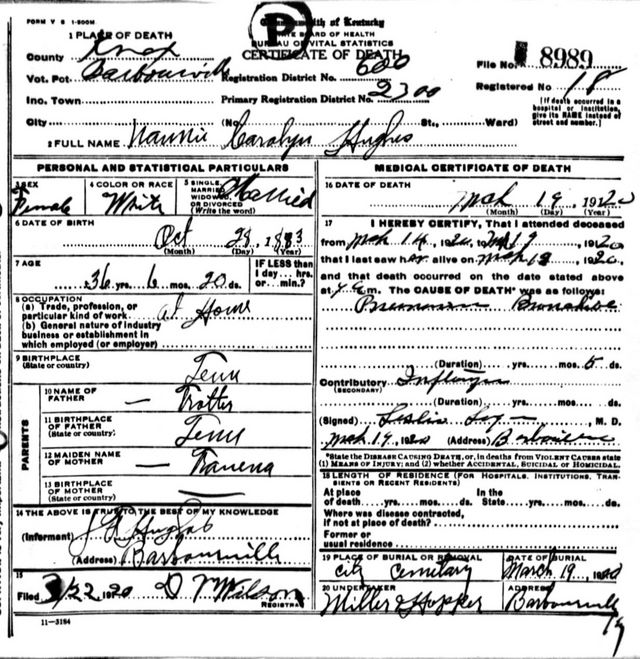 FORM V S 1-500M
P
Commonwealth of Kentucky
STATE BOARD OF HEALTH
BUREAU OF VITAL STATISTICS
CERTIFICATE OF DEATH
1 PLACE OF DEATH
County Knox
Vot. Pct Barbourville
Registration District No. 600
File No. 8989
Inc. Town
Primary Registration District No. 2300
Registered No. 18
City (No. St., Ward)
[If death occurred in a hospital or institution, give its NAME instead of street and number.]
2 FULL NAME Nannie Carolyn Hughes
PERSONAL AND STATISTICAL PARTICULARS
3 SEX Female
4 COLOR OR RACE White
5 SINGLE, MARRIED, WIDOWED, OR DIVORCED (Write the word) Married
6 DATE OF BIRTH
Oct 28, 1883
(Month) (Day) (Year)
7 AGE
36 yrs. 6 mos. 20 ds.
IF LESS than 1 day... hrs. or... min.
8 OCCUPATION
(a) Trade, profession, or particular kind of work At Home
(b) General nature of industry business or establishment in which employed (or employer)
9 BIRTHPLACE Tenn
PARENTS
10 NAME OF FATHER — Trotter
11 BIRTHPLACE OF FATHER (State or country) Tenn
12 MAIDEN NAME OF MOTHER —
13 BIRTHPLACE OF MOTHER (State or country) —
14 THE ABOVE IS TRUE TO THE BEST OF MY KNOWLEDGE
(Informant) J R Hughes
(Address) Barbourville
15
Filed 3/22 1920 D Wilson
REGISTRAR
11-3184
MEDICAL CERTIFICATE OF DEATH
16 DATE OF DEATH
Mch 19, 1920
(Month) (Day) (Year)
17 I HEREBY CERTIFY, That I attended deceased
from Mch 14, 1920, Mch 19, 1920
that I last saw her alive on Mch 18, 1920,
and that death occurred on the date stated above
at m. The CAUSE OF DEATH* was as follows:
(Duration) yrs. mos. 5 ds.
Contributory (SECONDARY) Influenza
(Duration) yrs. mos. ds.
(Signed) Leslie Logan, M. D.
Mch 19, 1920 (Address) Barbourville
*State the DISEASE CAUSING DEATH, or, in deaths from VIOLENT CAUSES state
(1) MEANS OF INJURY; and (2) whether ACCIDENTAL, SUICIDAL or HOMICIDAL.
18 LENGTH OF RESIDENCE (FOR HOSPITALS, INSTITUTIONS, TRANSIENTS OR RECENT RESIDENTS)
At place of death yrs. mos. ds. In the State yrs. mos. ds.
Where was disease contracted, if not at place of death?
Former or usual residence
19 PLACE OF BURIAL OR REMOVAL City Cemetary
DATE OF BURIAL March 19, 1920
20 UNDERTAKER Miller & Hopper
ADDRESS Barbourville